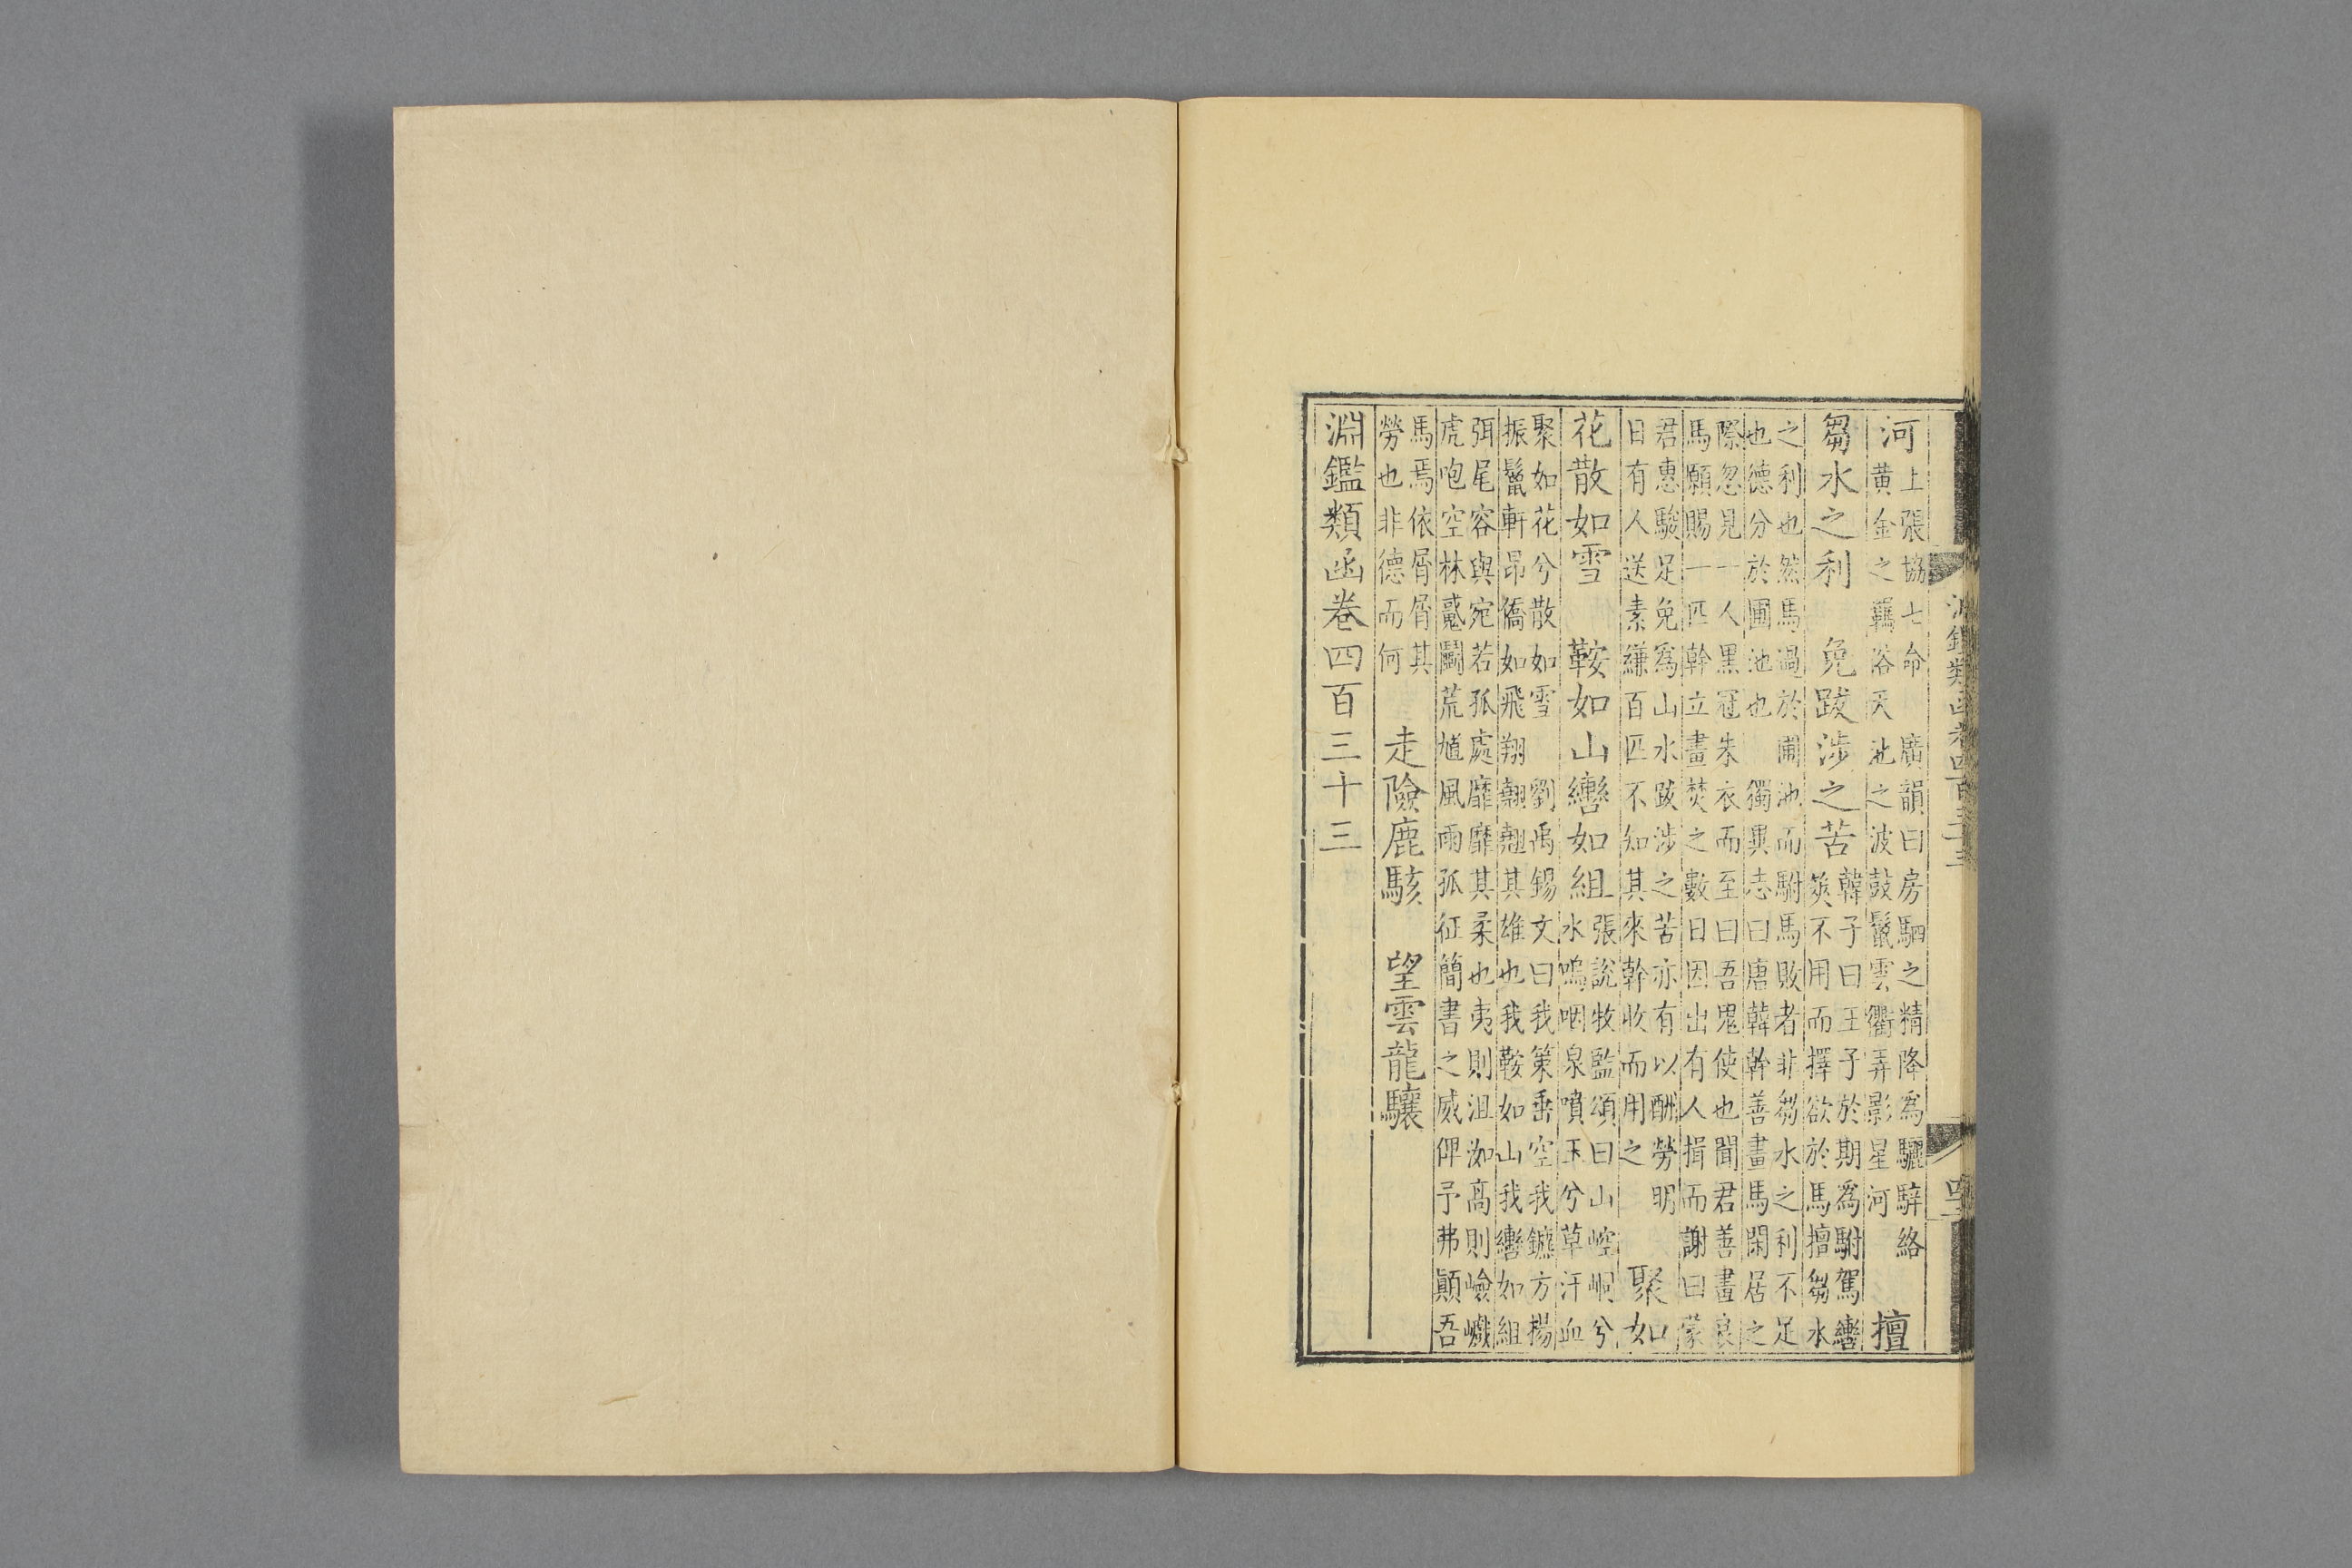 河上張協七命 廣韻曰房駟之精降為驪騂絡
黄金之羈浴天池之波鼓鬣雲衢弄影星河 擅
芻水之利 免跋涉之苦韓子曰王子於期為駙駕轡
筴不用而擇欲於馬擅芻水
之利也然馬過於圃池而駙馬敗者非芻水之利不足
也德分於圃池也 獨異志曰唐韓幹善畫馬閑居之
際忽見一人黒冠朱衣而至曰吾鬼使也聞君善畫良
馬願賜一匹幹立畫焚之數日因出有人揖而謝曰蒙
君惠駿足免為山水跋涉之苦亦有以酬勞明
日有人送素縑百匹不知其來幹收而用之 聚如
花散如雪 鞍如山轡如組張說牧監頌曰山崆峒兮
水嗚咽泉噴玉兮草汗血
聚如花兮散如雪 劉禹錫文曰我策垂空我鑣方揚
振鬣軒昂僑如飛翔翹翹其雄也我鞍如山我轡如組
弭尾容與宛若孤處靡靡其柔也夷則沮洳高則嶮巇
虎咆空林鬿鬬荒馗風雨孤征簡書之威俾予弗顛吾
馬焉依屑屑其
勞也非德而何 走險鹿駭 望雲龍驤
淵鑑類函卷四百三十三